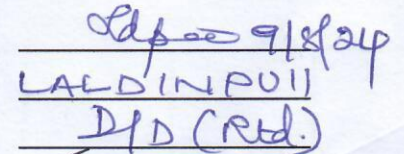 9/8/24
LALDINPUII
D/D (Rtd.)